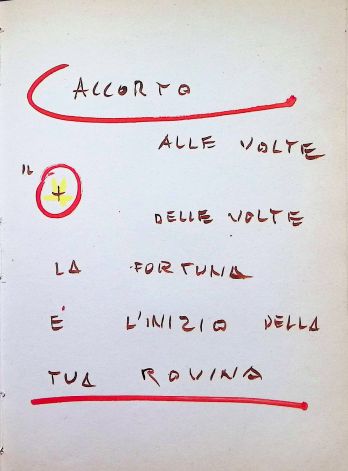 ACCORTO
ALLE VOLTE
"IL +
DELLE VOLTE
LA FORTUNA
E' L'INIZIO DELLA
TUA ROVINA